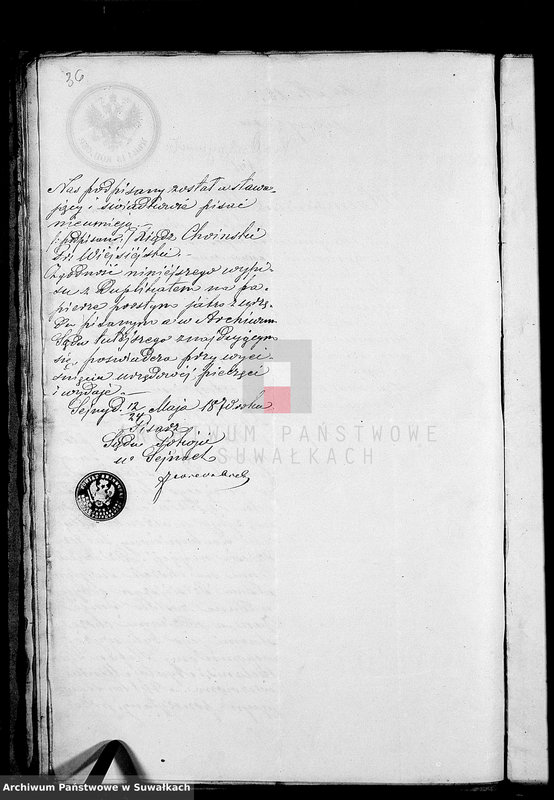 36
Nas podpisany został a stawa-
jący i świadkowie pisać
nieumieją.-
/: podpisano :/ Xiądz Choiński
Wiejsiejski.-
Zgodność niniejszego wypi-
su z Duplikatem na pa-
pierze prostym jako z urzę-
du pisanym a w Archiwum
Sądu tutejszego znajdującym
się, poświadcza przy wyci-
śnięciu urzędowej pieczęci
i wydaje.-
Sejny d. 12/24 Maja 1870 roku
Pisarz
Sądu Pokoju
w Sejnach
ARCHIWUM PAŃSTWOWE
SUWAŁKACH
Archiwum Państwowe w Suwałkach